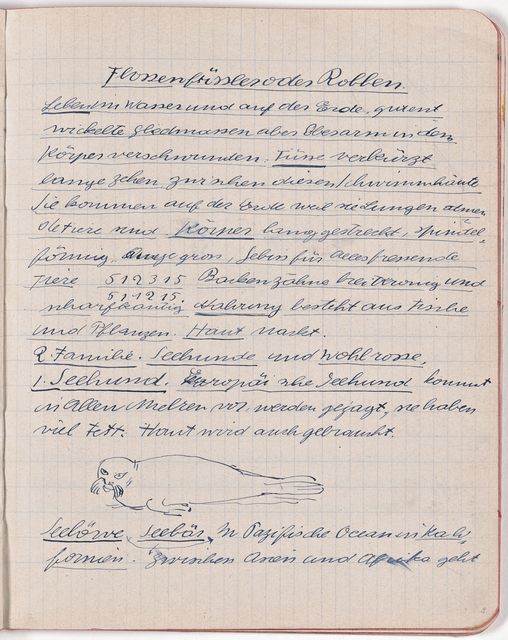 Flossenfüssler odes Robben.
Leben im Wasser und auf des Erde, gut ent
wickelte Gliedmassen abes Oberarm in den
Körpes verschwunden. Füsse verkürzt
lange zehen zwischen diesen Schwimmhäute
Sie kommen auf der Erde weil sie Lungen atmen
de Tiere sind Körpes lang gestreckt, spindel-
förmig, Auge gros, Gebis für alles fresende
Tiere 5 1 2 3 1 5 Backenzähne breitkronig und
5 1 1 2 1 5
scharfkantig Nahrung besteht aus Fische
und Pflanzen. Haut nackt.
2. Familie. Seehunde und Wohlrosse,
1. Seehund. Europäi sche Seehund kommt
in Allen Mehren vor, werden gejagt, sie haben
viel Fett. Haut wird auch gebraucht.
Seelöwe, Seebär, In Pazifische Ocean in Kali
fornien. zwischen Asien und Afrika geht